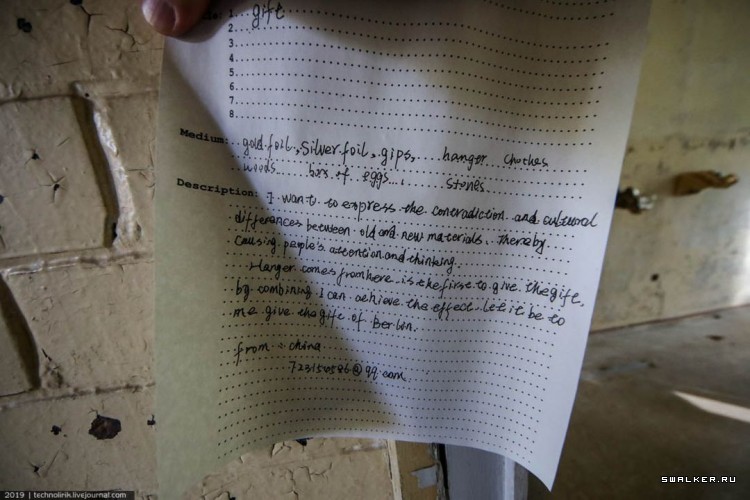 1. gift
2.
3.
4.
5.
6.
7.
8.
Medium: gold foil, silver foil, gips, hanger chothes
woods box of eggs, stones
Description: I want to express the contradiction and cultural
differences between old and new materials. Thereby
causing people's attention and thinking.
Hanger comes from here is the first to give the gift,
by combining I can achieve the effect. Let it be to
me give the gift of Berlin.
from: china
@qq.com
2019 | technolirik.livejournal.com
SWALKER.RU